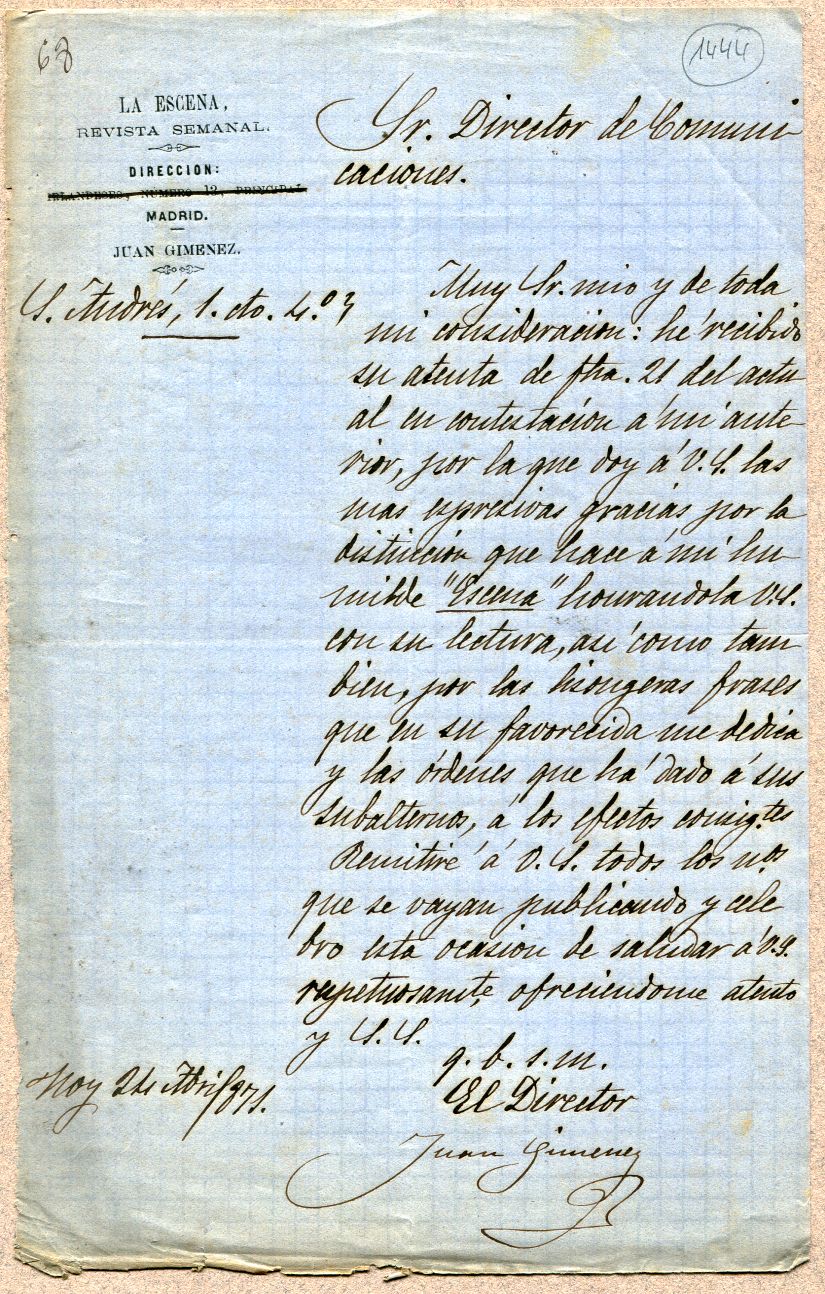 68
1444
LA ESCENA,
REVISTA SEMANAL.
DIRECCION:
IRLANDESES, NÚMERO 12, PRINCIPAL
MADRID.
JUAN GIMENEZ.
S. Andrés, 1. cto. 4.º
Sr. Director de Comuni
caciones.
Muy Sr. mio y de toda
mi consideración: hé recibido
su atenta de fha. 21 del actu
al en contestación á mi ante-
rior, por la que doy á V.S. las
mas espresivas gracias por la
distinción que hace á mi hu-
milde "Escena" honrandola V.S.
con su lectura, así como tam
bien, por las lisongeras frases
que en su favorecida me dedica
y las órdenes que há dado á sus
subalternos, á los efectos consig.tes
Remitiré á V.S. todos los n.os
que se vayan publicando y cele
bro esta ocasion de saludar á V.S.
respetuosamte, ofreciendome atento
y S.S.
q. b. s. m.
El Director
Juan Gimenez
Hoy 24 Abril/871.